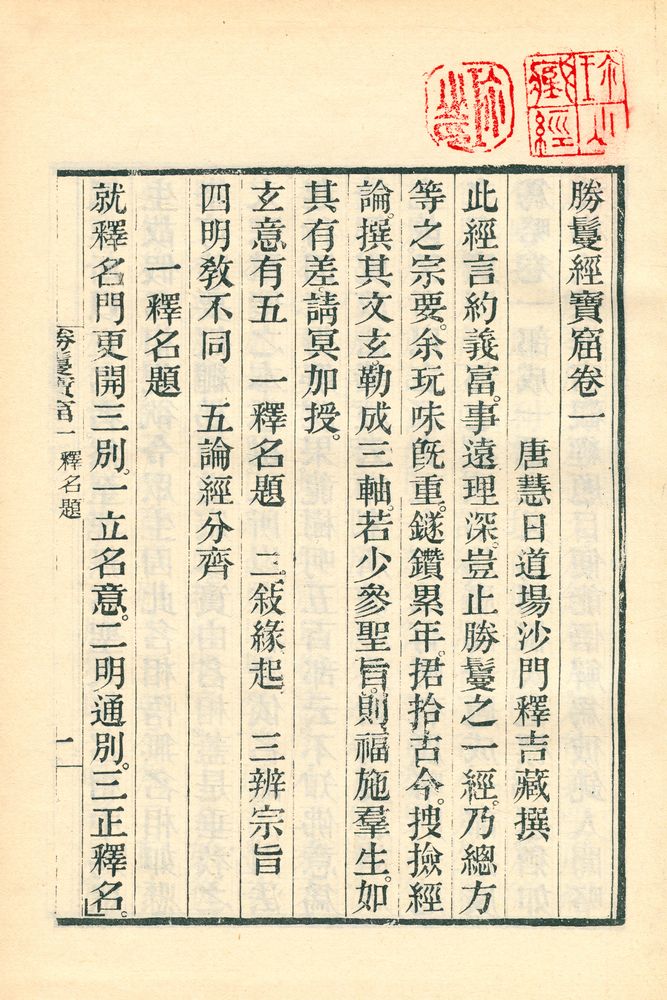 勝鬘經寶窟卷一
唐慧日道場沙門釋吉藏撰
此經言約義富。事遠理深。豈止勝鬘之一經。乃總方
等之宗要。余玩味旣重。鑽鑽累年。捃拾古今。搜撿經
論。撰其文玄。勒成三軸。若少參聖旨。則福施羣生。如
其有差。請冥加授。
玄意有五　一釋名題　二敍緣起　三辨宗旨
四明敎不同　五論經分齊
一釋名題
就釋名門更開三別。一立名意。二明通別。三正釋名。
勝鬘寶窟一　釋名題
一